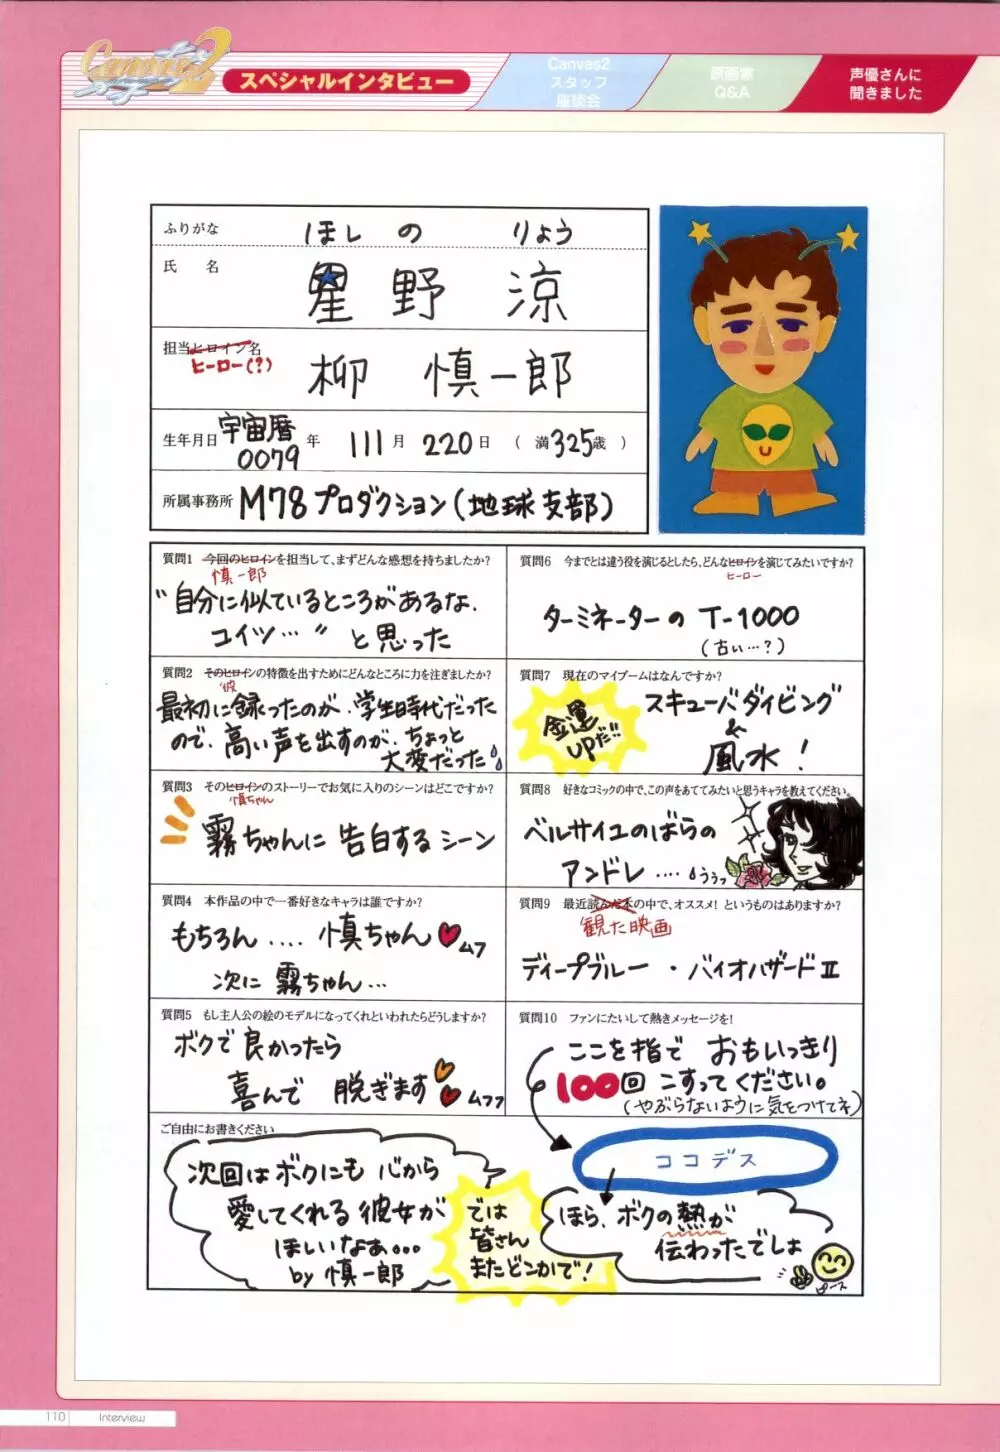 Canvas2
スペシャルインタビュー
Canvas2
スタッフ
座談会
原画家
Q&A
声優さんに
聞きました
ふりがな ほしの りょう
氏 名 星野 涼
担当ヒロイン名
ヒーロー(?)
柳 慎一郎
生年月日 宇宙暦0079年 111月 220日 (満325歳)
所属事務所 M78プロダクション(地球支部)
質問1 今回のヒロインを担当して、まずどんな感想を持ちましたか?
慎一郎
"自分に似ているところがあるな、
コイツ…"と思った
質問2 そのヒロインの特徴を出すためにどんなところに力を注ぎましたか?
彼
最初に録ったのが、学生時代だった
ので、高い声を出すのが、ちょっと
大変だった
質問3 そのヒロインのストーリーでお気に入りのシーンはどこですか?
慎ちゃん
霧ちゃんに告白するシーン
質問4 本作品の中で一番好きなキャラは誰ですか?
もちろん.... 慎ちゃん ムフ
次に 霧ちゃん…
質問5 もし主人公の絵のモデルになってくれといわれたらどうしますか?
ボクで良かったら
喜んで 脱ぎます ムフフ
質問6 今までとは違う役を演じるとしたら、どんなヒロインを演じてみたいですか?
ヒーロー
ターミネーターの T-1000
(古い…?)
質問7 現在のマイブームはなんですか?
金運
UPだ!!
スキューバダイビング
&
風水!
質問8 好きなコミックの中で、この声をあててみたいと思うキャラを教えてください。
ベルサイユのばらの
アンドレ....うぅっ
質問9 最近読んだ本の中で、オススメ!というものはありますか?
観た映画
ディープブルー・バイオハザードⅡ
質問10 ファンにたいして熱きメッセージを!
ここを指で おもいっきり
100回 こすってください。
(やぶらないように気をつけてネ)
ご自由にお書きください
ココデス
次回はボクにも 心から
愛してくれる 彼女が
ほしいなぁ…
by 慎一郎
では
皆さん
またどこかで!
ほら、ボクの熱が
伝わったでしょ
ピース
110 Interview